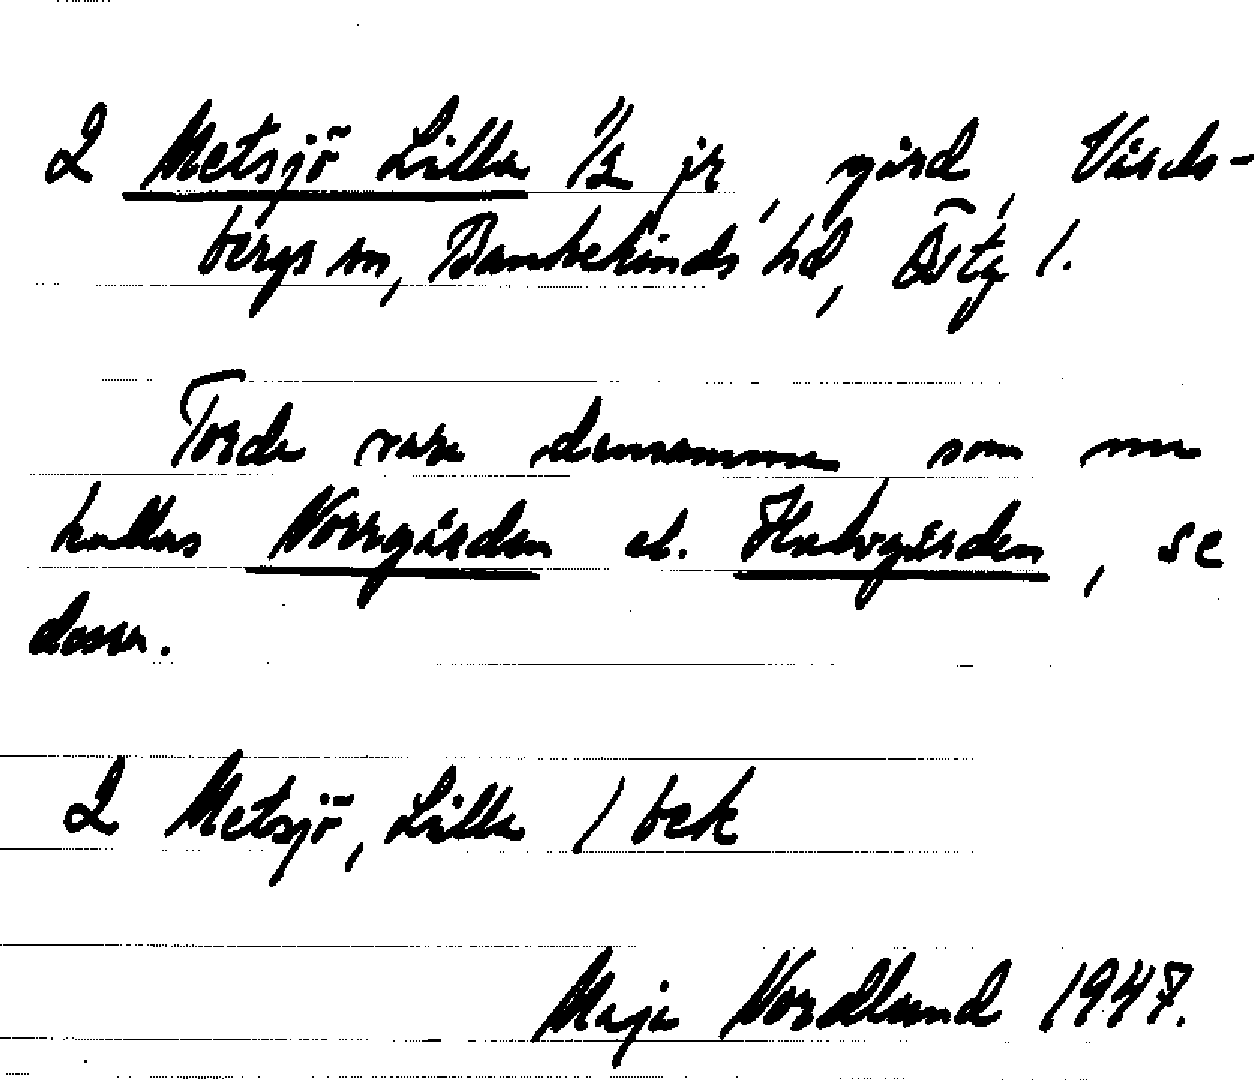 2 Metsjö Lilla 1/2 jr, gård, Vårds-
bergs sn, Bankekinds hd, Östg l.
Torde vara densamma som nu
kallas Norrgården el. Halvgården, se
dessa.
2 Metsjö, Lilla / bek
Maja Nordlund 1947.